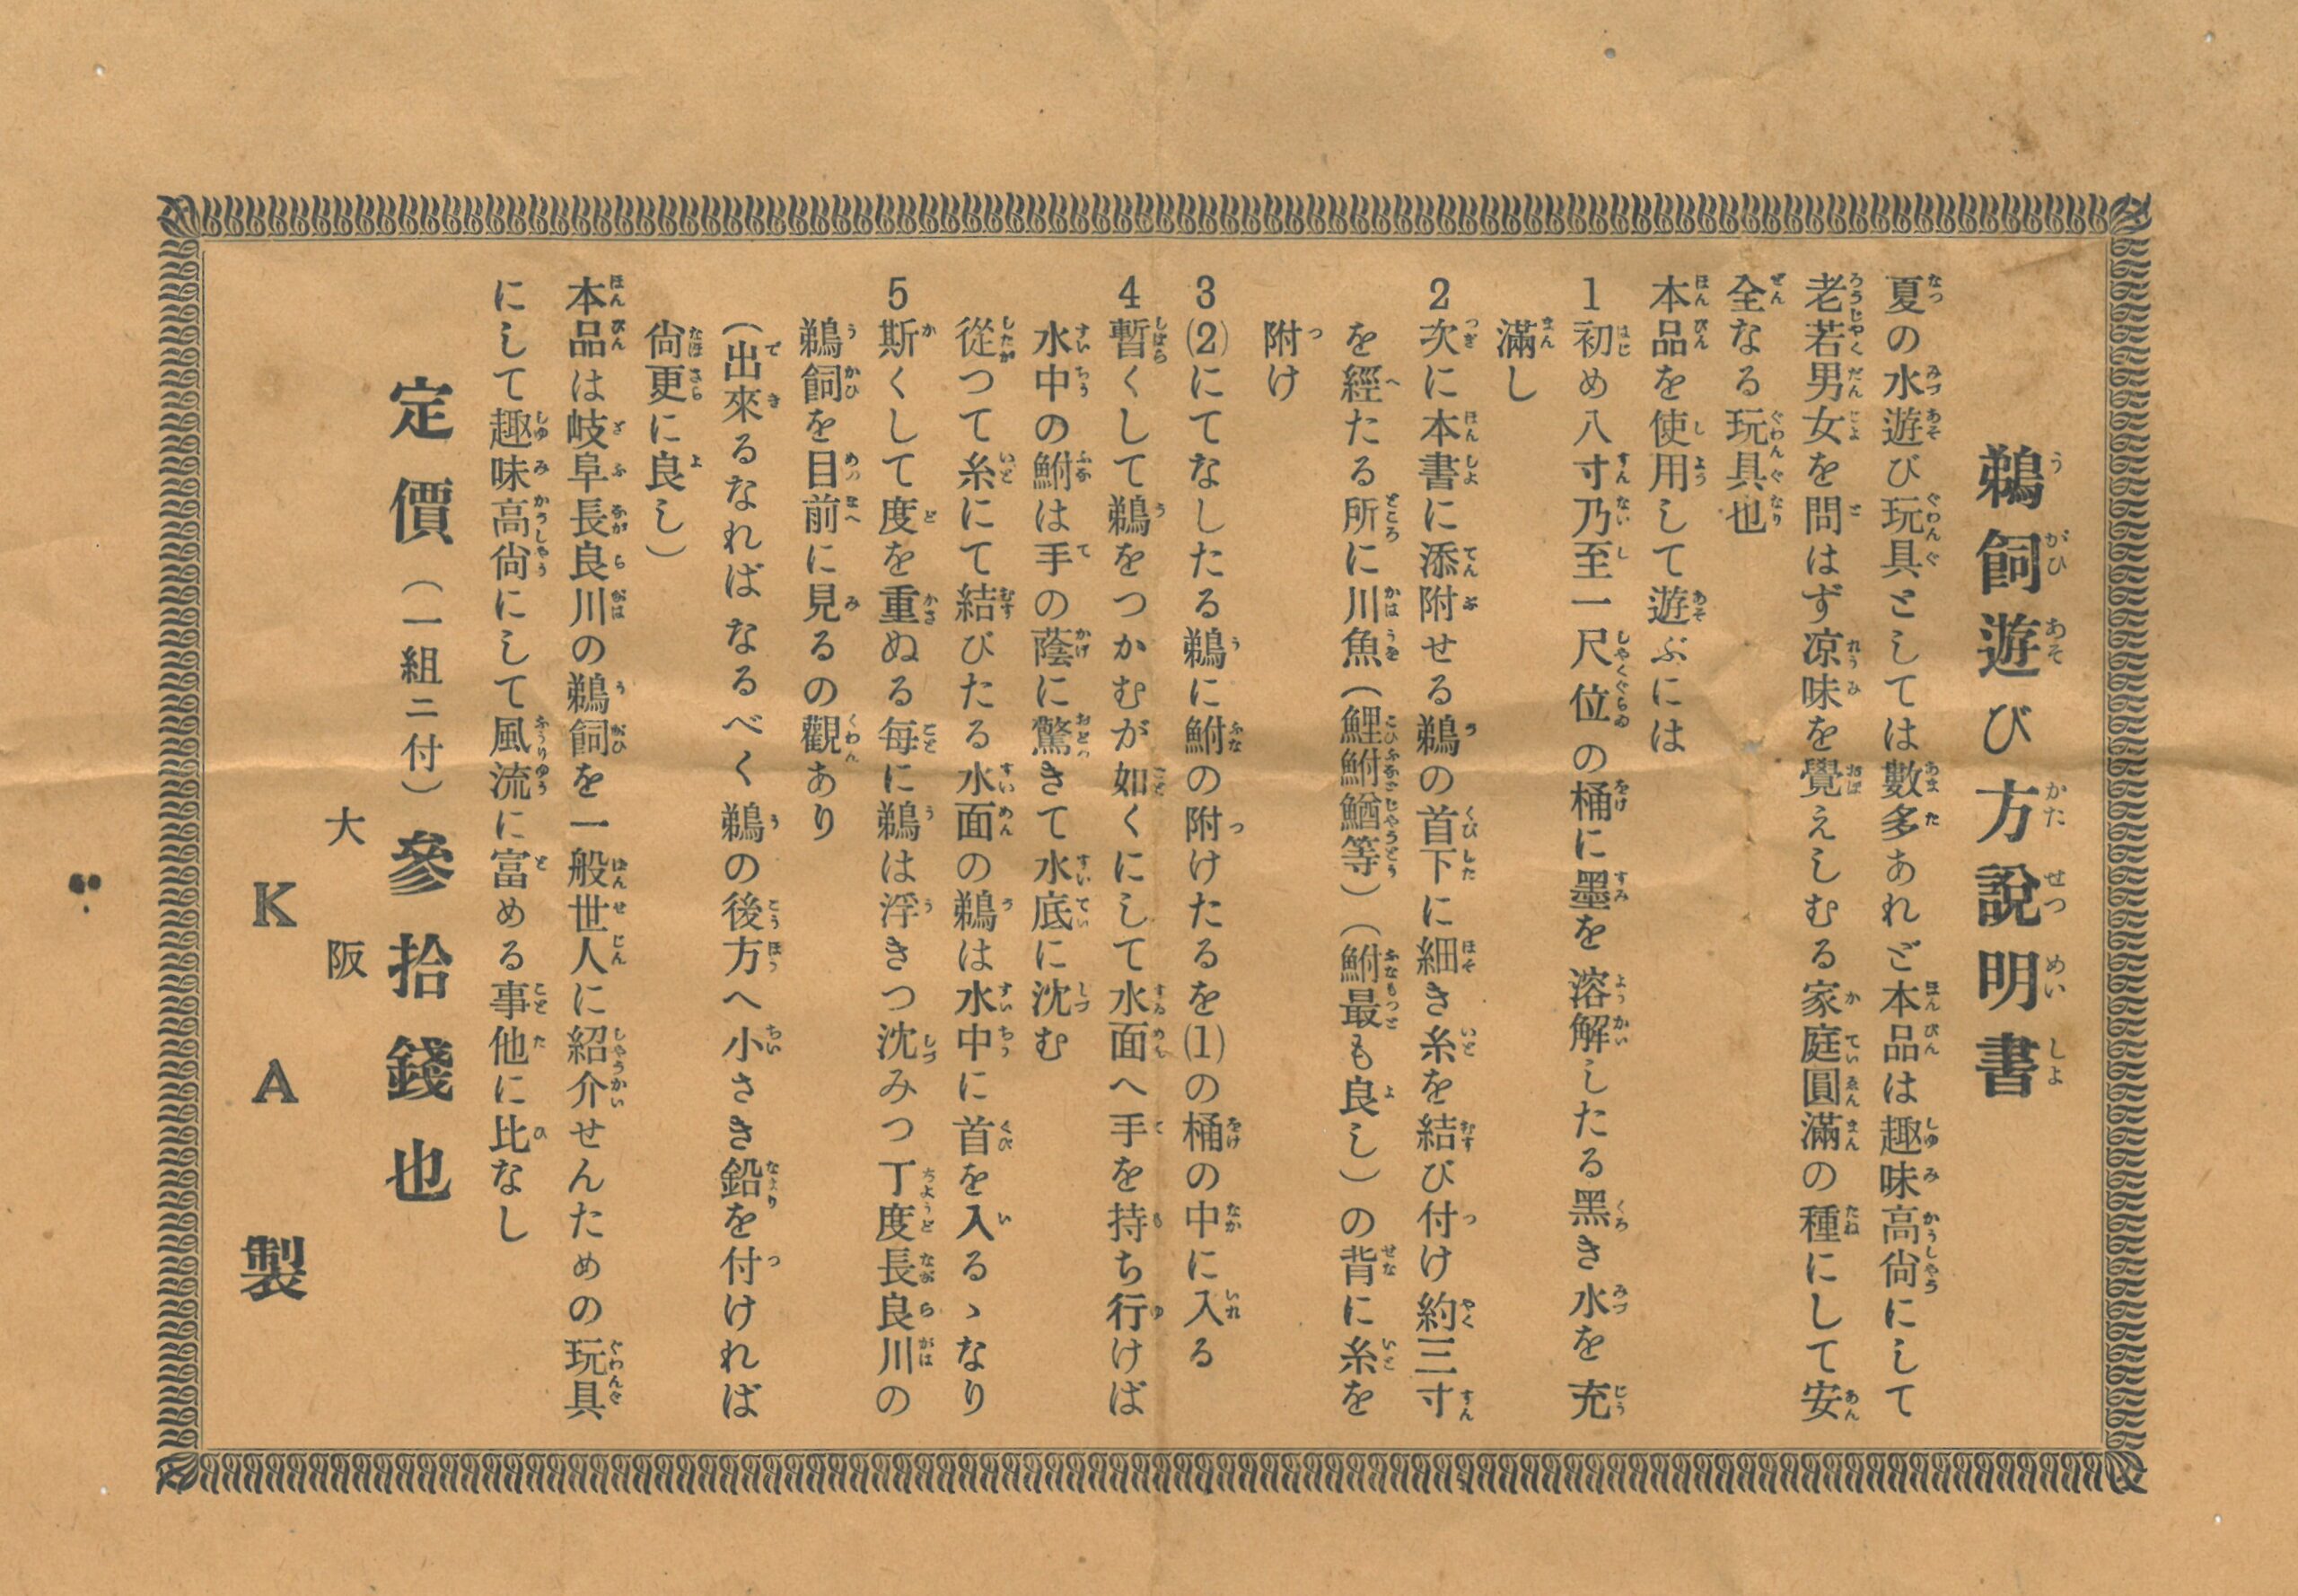 鵜飼遊び方說明書
夏の水遊び玩具としては數多あれど本品は趣味高尙にして
老若男女を問はず凉味を覺えしむる家庭圓滿の種にして安
全なる玩具也
本品を使用して遊ぶには
1初め八寸乃至一尺位の桶に墨を溶解したる黑き水を充
滿し
2次に本書に添附せる鵜の首下に細き糸を結び付け約三寸
を經たる所に川魚（鯉鮒鰌等）（鮒最も良し）の背に糸を
附け
3(2)にてなしたる鵜に鮒の附けたるを(1)の桶の中に入る
4暫くして鵜をつかむが如くにして水面へ手を持ち行けば
水中の鮒は手の蔭に驚きて水底に沈む
從つて糸にて結びたる水面の鵜は水中に首を入るゝなり
5斯くして度を重ぬる每に鵜は浮きつ沈みつ丁度長良川の
鵜飼を目前に見るの觀あり
（出來るなればなるべく鵜の後方へ小さき鉛を付ければ
尙更に良し）
本品は岐阜長良川の鵜飼を一般世人に紹介せんための玩具
にして趣味高尙にして風流に富める事他に比なし
定價（一組ニ付）參拾錢也
大阪
KA製